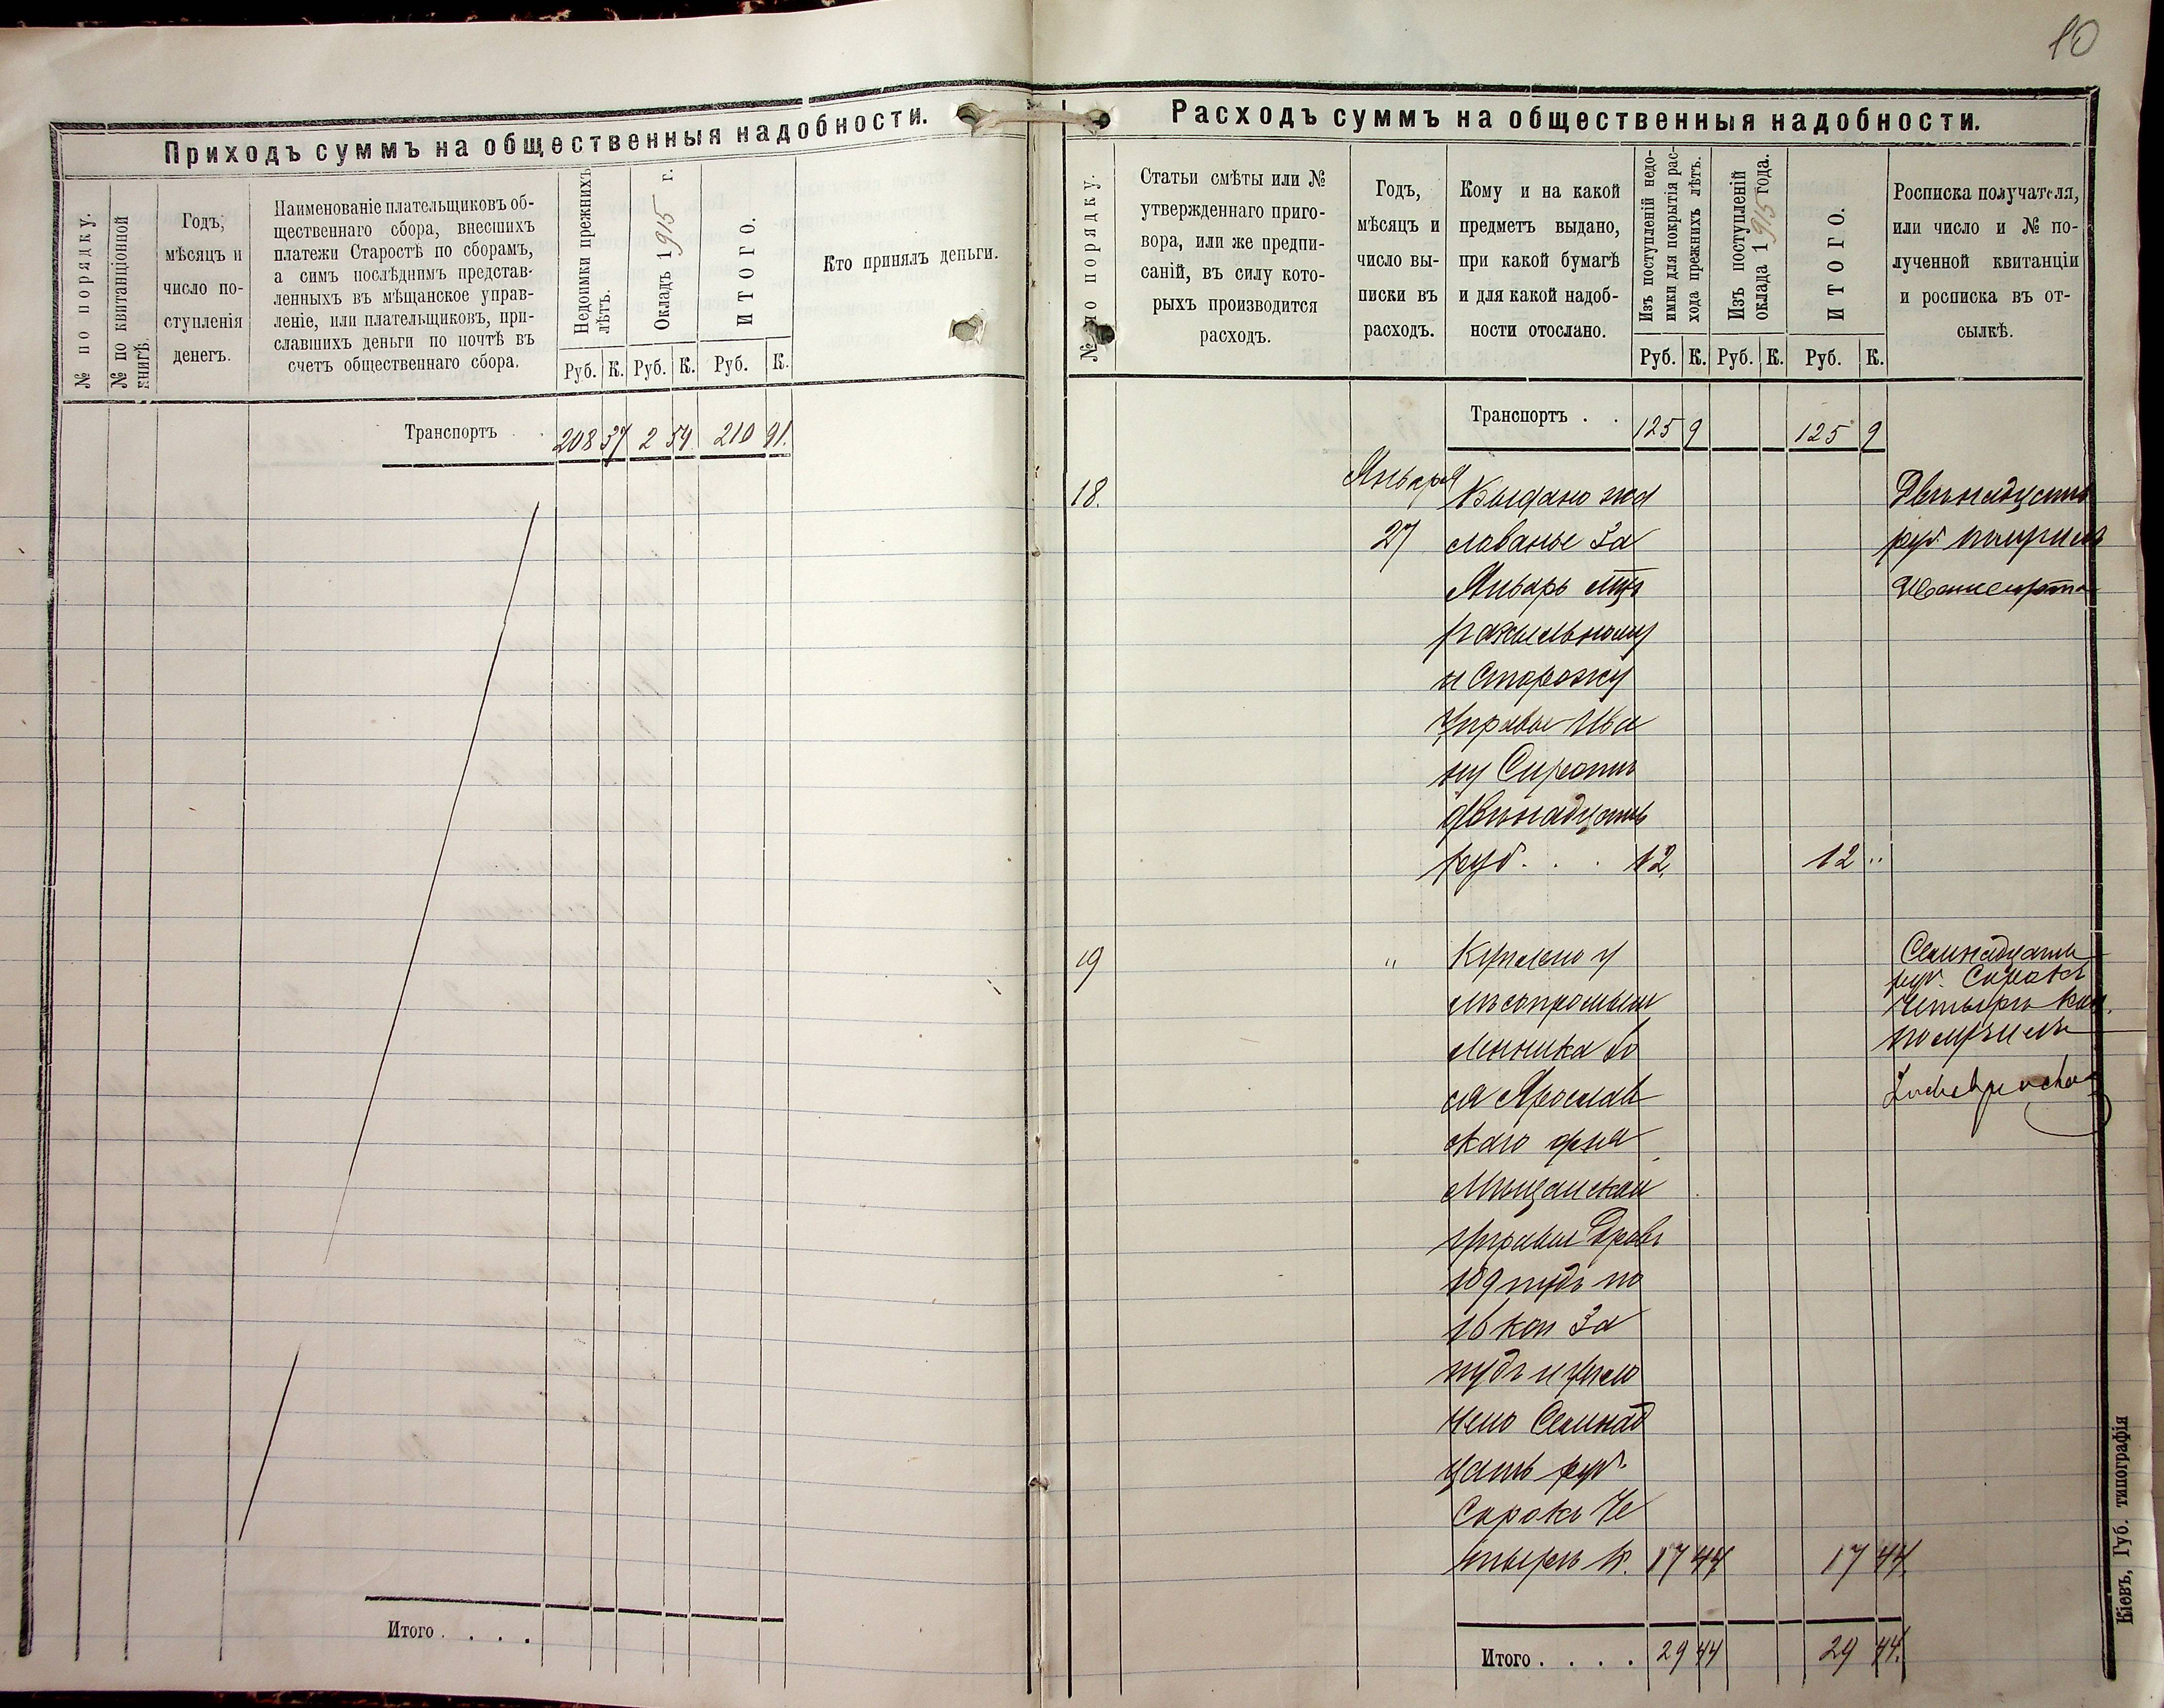 10
Приходъ суммъ на общественныя надобности.
№ по порядку.
№ по квитанціонной книгѣ.
Годъ,
мѣсяцъ и
число по-
ступленія
денегъ.
Наименованіе плательщиковъ об-
щественнаго сбора, внесшихъ
платежи Старостѣ по сборамъ,
а симъ послѣднимъ представ-
ленныхъ въ мѣщанское управ-
леніе, или плательщиковъ, при-
славшихъ деньги по почтѣ въ
счетъ общественнаго сбора.
Недоимки прежнихъ
лѣтъ.
Окладъ 1915 г.
ИТОГО.
Руб. К. Руб. К. Руб. К.
Кто принялъ деньги.
Транспортъ . . 208 37 2 54 210 91.
Итого . . . .
Расходъ суммъ на общественныя надобности.
№ по порядку.
Статьи смѣты или №
утвержденнаго приго-
вора, или же предпи-
саній, въ силу кото-
рыхъ производится
расходъ.
Годъ,
мѣсяцъ и
число вы-
писки въ
расходъ.
Кому и на какой
предметъ выдано,
при какой бумагѣ
и для какой надоб-
ности отослано.
Изъ поступленій недо-
имки для покрытія рас-
хода прежнихъ лѣтъ.
Изъ поступленій
оклада 1915 года.
ИТОГО.
Руб. К. Руб. К. Руб. К.
Росписка получателя,
или число и № по-
лученной квитанціи
и росписка въ от-
сылкѣ.
Транспортъ . . 125 9 125 9
18.
Января
27
Выдано жа
лованье за
Январь мцъ
разсыльному
и Сторожу
Управы Ива
ну Сиротѣ
двѣнадцать
руб. . . 12. 12 "
Двѣнадцать
руб. получилъ
Иванъ Сирота
19
"
Куплено у
лѣсопромыш
ленника Бо
ся Ярослав
скаго для
Мѣщанской
управы Дровъ
109 пудъ по
16 коп за
пудъ и упла
чено Семнад
цать руб.
Сорокъ Че
тыре к. 17 44 17 44.
Семнадцать
руб. Сорокъ
Четыре коп.
получилъ
Итого . . . . 29 44 29 44.
Кіевъ, Губ. типографія